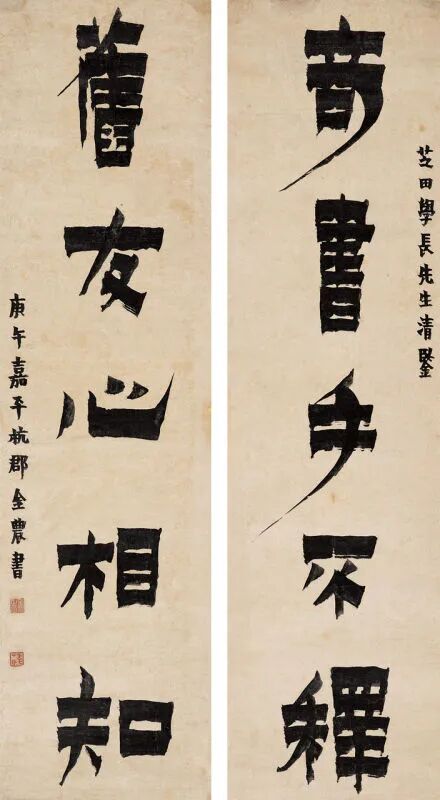 芝田學長先生清鑒
奇書手不釋
舊友心相知
庚午嘉平杭郡金農書